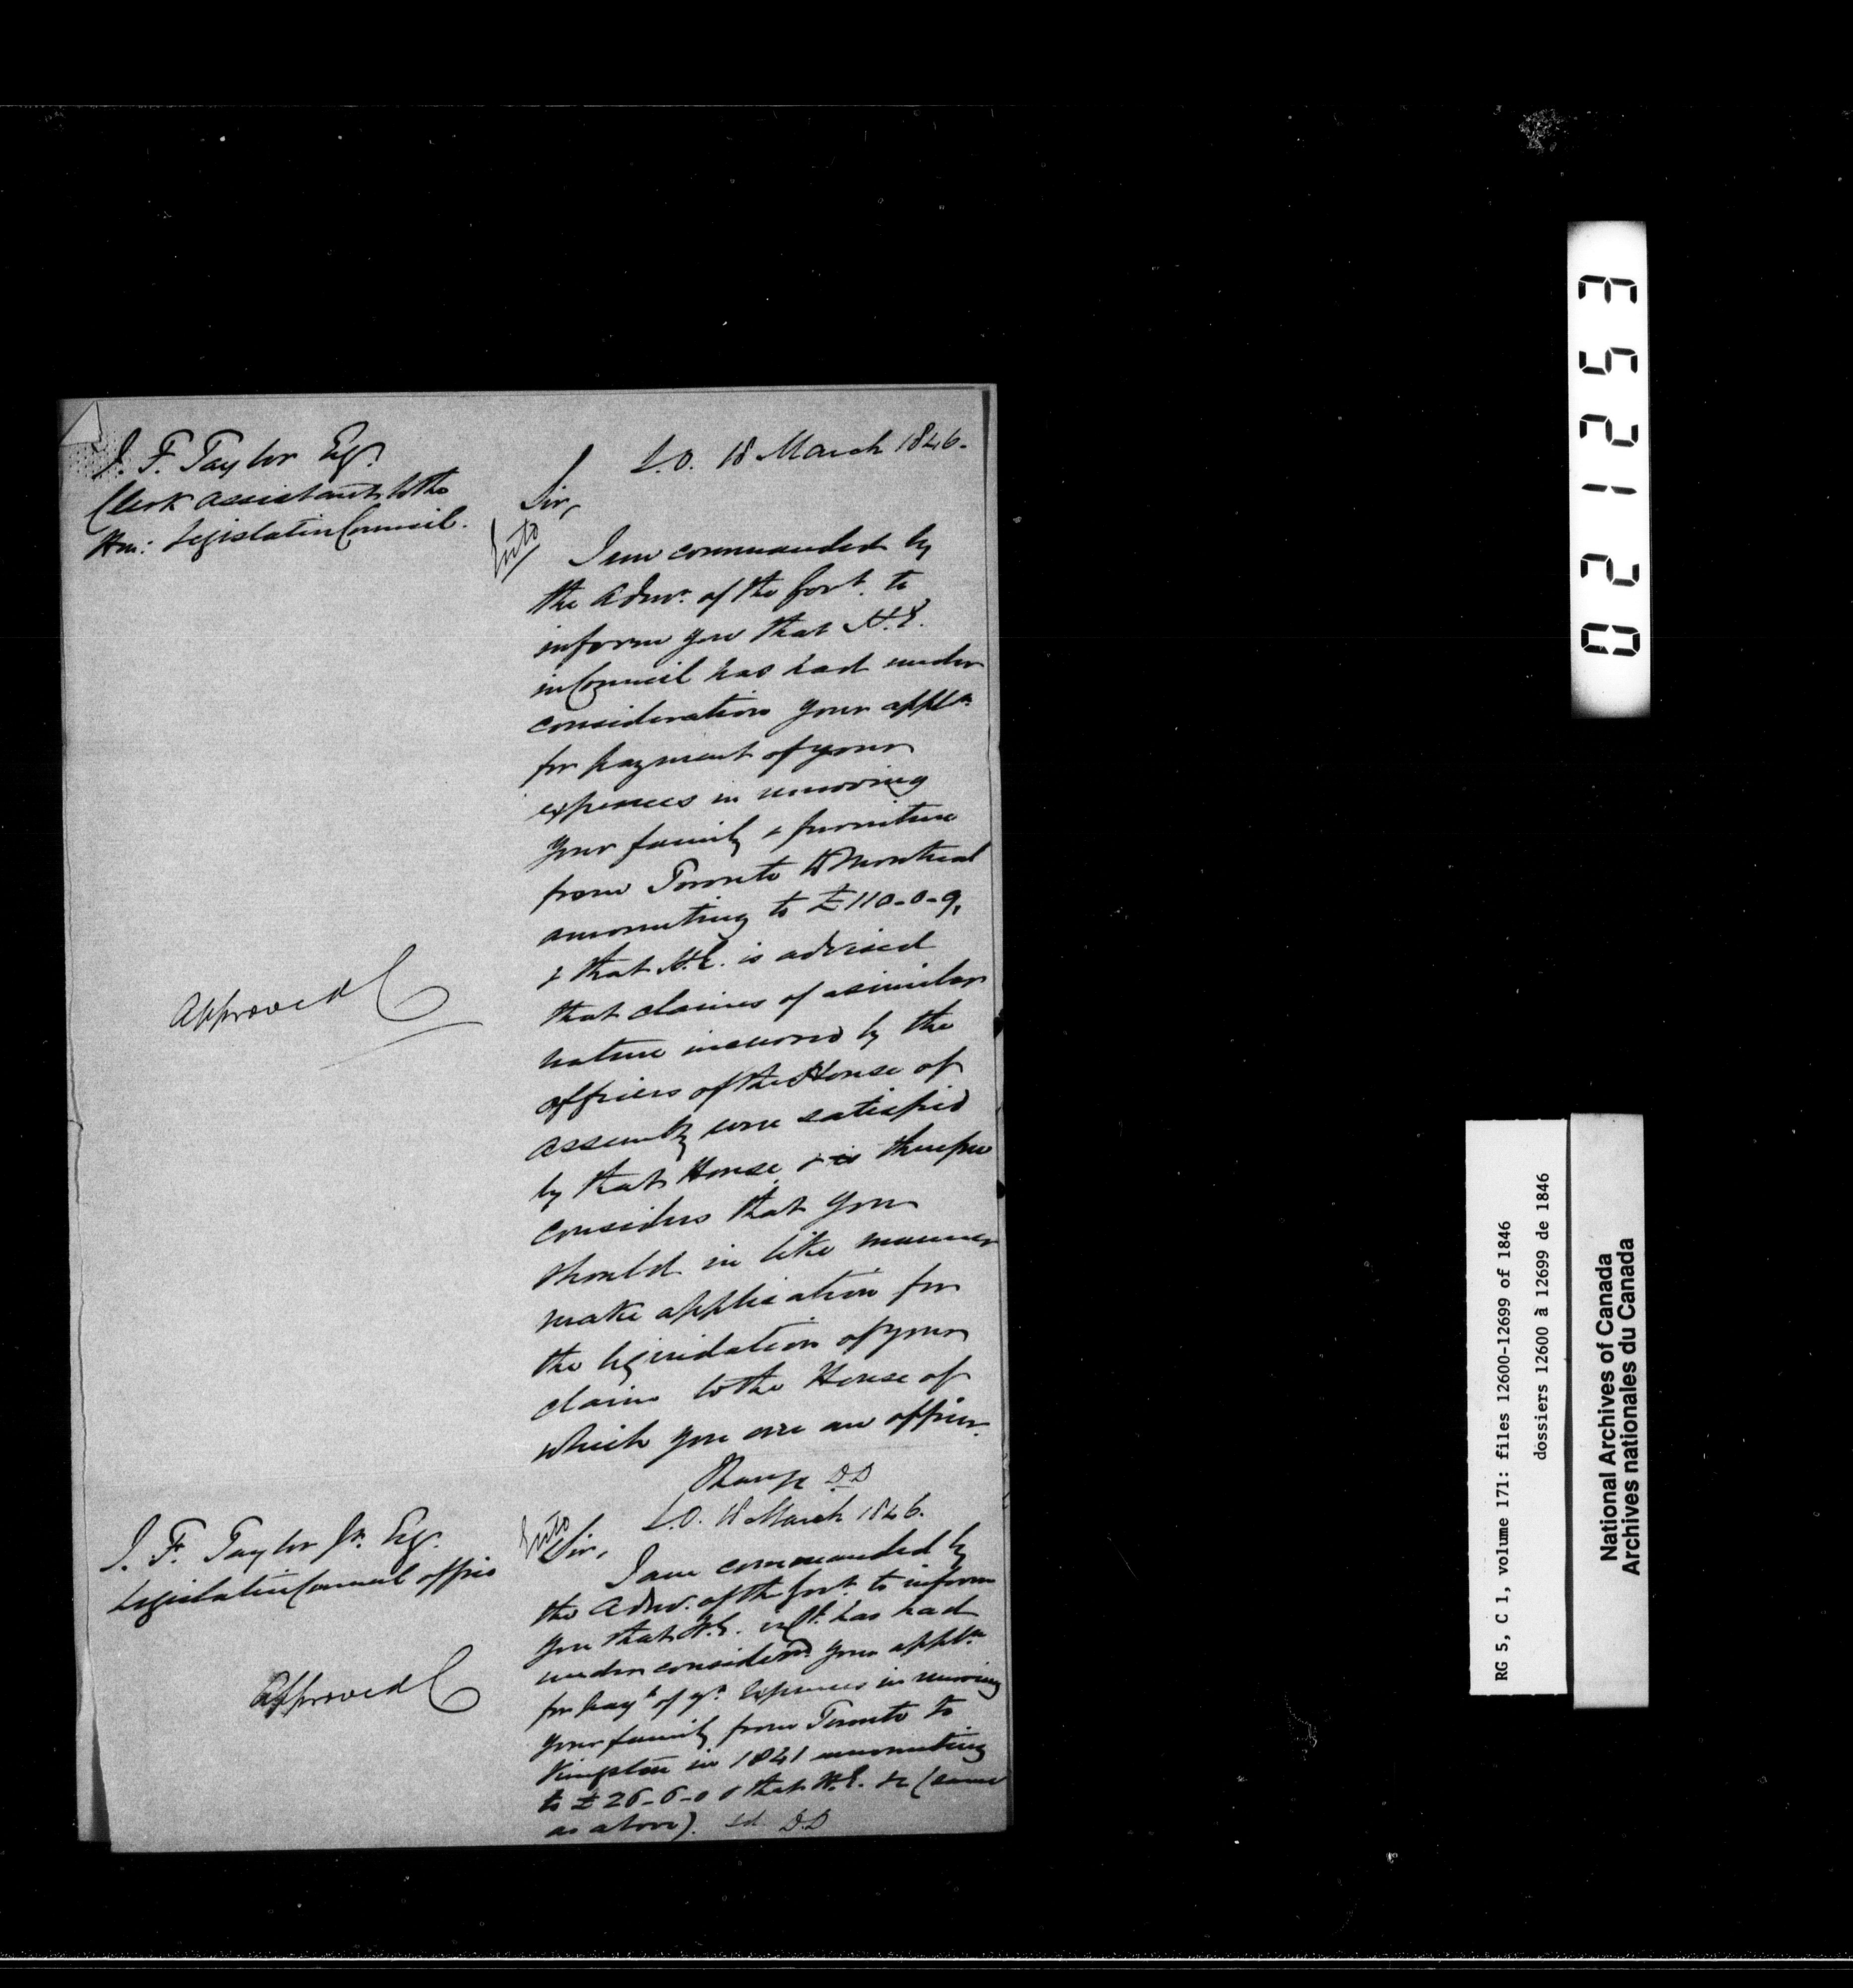 J. F. Taylor Esqr.
Clerk Assistant to the
Hon: Legislative Council.
S.O. 18 March 1846.
Sir,
I am commanded by
the Admr. of the Govt. to
inform you that H.E.
in Council has had under
consideration your appln.
for payment of your
expenses in removing
your family & furniture
from Toronto to Montreal
amounting to £110-0-9,
& that H.E. is advised
that claims of a similar
nature incurred by the
officers of the House of
Assembly were satisfied
by that House & is therefore
considers that you
should in like manner
make application for
the liquidation of your
claim to the House of
which you are an officer.
D.D
Approved C
J. F. Taylor Jr. Esqr.
Legislative Council Office
S.O. 18 March 1846.
Sir,
I am commanded by
the Admr. of the Govt. to inform
you that H.E. in Cl. has had
under considern. your appln.
for payt. of yr. expenses in moving
your family from Toronto to
Kingston in 1841 amounting
to £26-6-0 & that H.E. &c (same
as above). Sd D.D
Approved C
021253
RG 5, C 1, volume 171: files 12600-12699 of 1846
dossiers 12600 à 12699 de 1846
National Archives of Canada
Archives nationales du Canada